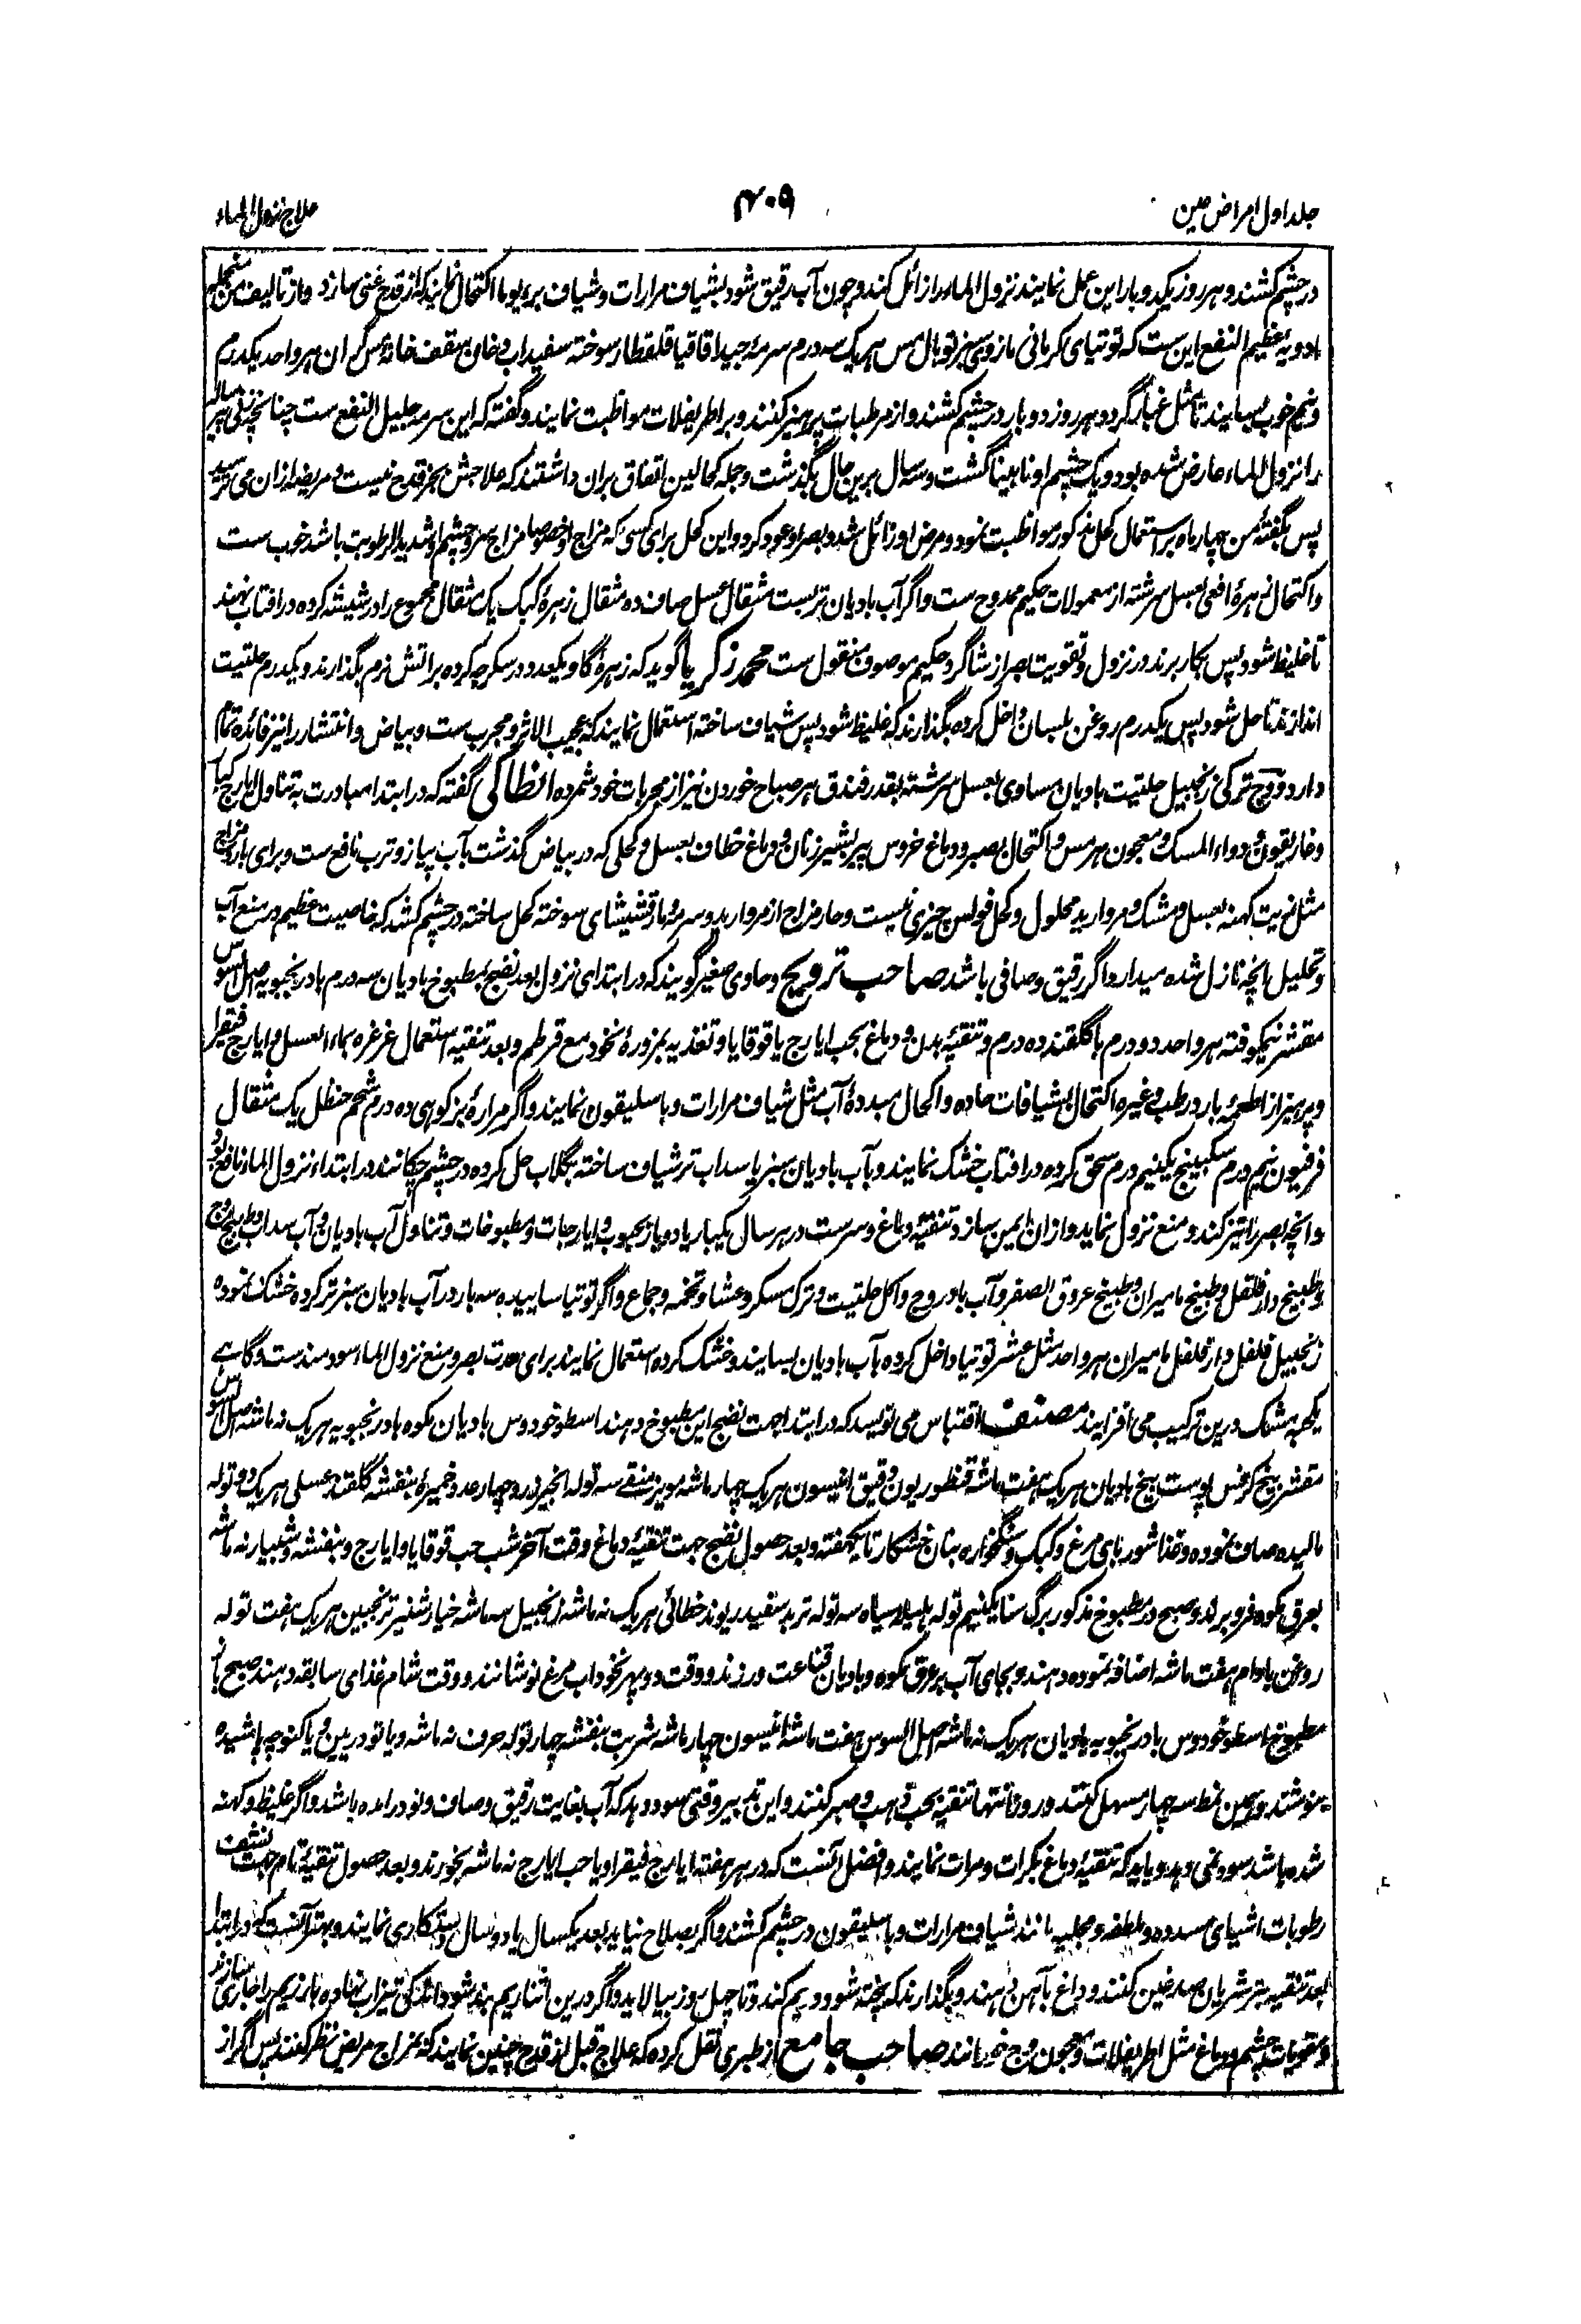 جلد اول امراض عین
۴۰۵
علاج نزول الماء
در چشم کشند و هر روز یکدو بار این عمل نمایند نزول الماء را زائل کند و چون آب رقیق شود بشیاف مرارات و شیاف بریویا اکتحال نمایند که از قدح غنی سازد و از تالیف من منجمله
ادویهٔ عظیم النفع این ست که توتیای کرمانی مازوی سبز توبال مس هریک سه درم سرمهٔ جید اقاقیا قلقطار سوخته سفیداب دخان سقف خانهٔ مس گران هر واحد یکدرم
و نیم خوب بسایند تا مثل غبار گردد و هر روز دو بار در چشم کشند و از مرطبات پرهیز کنند و بر اطریفلات مواظبت نمایند و گفته که این سرمه جلیل النفع ست چنانچه زنی پیر ساله
را نزول الماء عارض شده بود و یک چشم او نابینا گشت و سه سال برین حال بگذشت و جمله کحالین اتفاق بران داشتند که علاجش بجز قدح نیست و مریضه ازان می ترسید
پس بگفتهٔ من چهار ماه بر استعمال کحل مذکور مواظبت نمود و مرض او زائل شد و بصر او عود کرد و این کحل برای کسی که مزاج او خصوصا مزاج سر و چشم او شدید الرطوبت باشد خوب ست
و اکتحال زهرهٔ افعی بعسل سرشته از معمولات حکیم ممدوح ست و اگر آب بادیان تر بست مثقال عسل صاف ده مثقال زهرهٔ کبک یک مثقال مجموع را در شیشه کرده در افتاب نهند
تا غلیظ شود پس بکار برند در نزول و تقویت بصر از شاگرد حکیم موصوف منقول ست محمد زکریا گوید که زهرهٔ گاو یکعدد در سکرچه کرده بر اتش نرم بگذارند و یکدرم حلتیت
اندازند تا حل شود پس یکدرم روغن بلسان داخل کرده بگذارند که غلیظ شود پس شیاف ساخته استعمال نمایند که عجیب الاثر و مجرب ست و بیاض و انتشار را نیز فائدهٔ تمام
دارد و وج ترکی زنجبیل حلتیت بادیان مساوی بعسل سرشته بقدر فندق هر صباح خوردن نیز از مجربات خود شمرده انطاکی گفته که در ابتدا مبادرت به تناول ایارج کبار
و غاریقون و دواء المسک و معجون هرمس و اکتحال بصبر و دماغ خروس پیر بشیر زنان و دماغ خطاف بعسل و کحلی که در بیاض گذشت بآب پیاز و ترب نافع ست و برای بارد مزاج
مثل زیت کهنه بعسل و مشک و مروارید محلول و کحل فولس چیزی نیست و حار مزاج از مروارید و سرمه و مارقشیشای سوخته کحل ساخته در چشم کشد که خاصیت عظیم در منع آب
و تحلیل انچه نازل شده میدارد اگر رقیق و صافی باشد صاحب ترویح و حاوی صغیر گویند که در ابتدای نزول بعد نضج بمطبوخ بادیان سه درم بادرنجبویه اصل السوس
مقشر نیکوفته هر واحد دو درم با گلقند ده درم و تنقیهٔ بدن و دماغ بحب ایارج یا قوقایا و تغذیه بمزورهٔ نخود مع قرطم و بعد تنقیه استعمال غرغره بماء العسل و ایارج فیقرا
و پرهیز از اطعمهٔ بارد رطب و غیره اکتحال بشیافات حاده و اکحال مبددهٔ آب مثل شیاف مرارات و باسلیقون نمایند و اگر مرارهٔ بز کوهی ده درم شحم حنظل یک مثقال
فرفیون نیم درم سکبینج یکنیم درم سحق کرده در افتاب خشک نمایند و بآب بادیان سبز یا سداب تر شیاف ساخته بگلاب حل کرده در چشم چکانند در ابتداء نزول الماء نافع بود
و انچه بصر را تیز کند و منع نزول نماید و ازان ایمن سازد تنقیهٔ دماغ و سر ست در هر سال یکبار یا دو بار بحبوب و ایارجات و مطبوخات و تناول آب بادیان و آب سداب و طبیخ وج
و طبیخ دارفلفل و طبیخ مامیران و طبیخ عروق الصفر و آب بادروج و اکل حلتیت و ترک مسکر و عشا و تخمه و جماع و اگر توتیا ساییده سه بار در آب بادیان سبز تر کرده خشک نموده
زنجبیل فلفل دارفلفل مامیران هر واحد مثل عشر توتیا داخل کرده بآب بادیان بسایند و خشک کرده استعمال نمایند برای حدت بصر و منع نزول الماء سودمند ست و گاہے
یکحبه مشک درین ترکیب می افزایند مصنف اقتباس می نویسد که در ابتدا جهت نضج این مطبوخ دهند اسطوخودوس بادیان مکوه بادرنجبویه هریک نه ماشه اصل السوس
مقشر بیخ کرفس پوست بیخ بادیان هریک هفت ماشه قنطوریون دقیق انیسون هریک چهار ماشه مویز منقے سه توله انجیر زرد چهار عدد خمیرهٔ بنفشه گلقند عسلی هریک دو توله
مالیده صاف نموده و غذا شوربای مرغ و کبک و سنگخواره بنان خشکار تا یکهفته و بعد حصول نضج جهت تنقیهٔ دماغ وقت آخر شب حب قوقایا و ایارج و بنفشه و شبیار نه ماشه
بعرق مکوه فرو برند و صبح در مطبوخ مذکور برگ سنا یکنیم توله هلیله سیاه سه توله تربد سفید ریوند خطائی هریک نه ماشه زنجبیل سه ماشه خیار شنبر ترنجبین هریک هفت توله
روغن بادام هفت ماشه اضافه نموده دهند و بجای آب بر عرق مکوه و بادیان قناعت ورزند و وقت دوپهر نخوداب مرغ نوشانند و وقت شام غذای سابقه دهند صبح باز
مطبوخ اسطوخودوس بادرنجبویه بادیان هریک نه ماشه اصل السوس هفت ماشه انیسون چهار ماشه شربت بنفشه چهار توله حرف نه ماشه و یا تودریین و یا کنوچه پاشیده
بنوشند و بهمین نمط سه چهار مسهل کنند و روز انتها تنقیه بحب ذهب و صبر کنند و این تدبیر وقتی سود دهد که آب بغایت رقیق و صاف و نو درامده باشد و اگر غلیظ و کهنه
شده باشد سود نمی دهد و باید که تنقیهٔ دماغ بکرات و مرات نمایند و افضل آنست که در هر هفته ایارج فیقرا و یا حب ایارج نه ماشه بخورند و بعد حصول تنقیهٔ تام جهت نشف
رطوبات اشیای مسدده و ملطفه و مجلیه مانند شیاف مرارات و باسلیقون در چشم کشند و اگر بصلاح نیاید بعد یکسال یا دو سال دستکاری نمایند و بهتر آنست که در ابتدا
بعد تنقیه بتر شریان صدغین کنند و داغ بآهن دهند و بگذارند که پخته شود و ریم کند و تا چهل روز بیالاید و اگر درین اثنا ریم بند شود اندکی تیزاب نهاده باز ریم را جاری سازند
و مقویات چشم و دماغ مثل اطریفلات و معجون وج خورانند صاحب جامع از طبری نقل کرده که علاج قبل از قدح چنین نمایند که بمزاج مریض نظر کنند پس اگر از